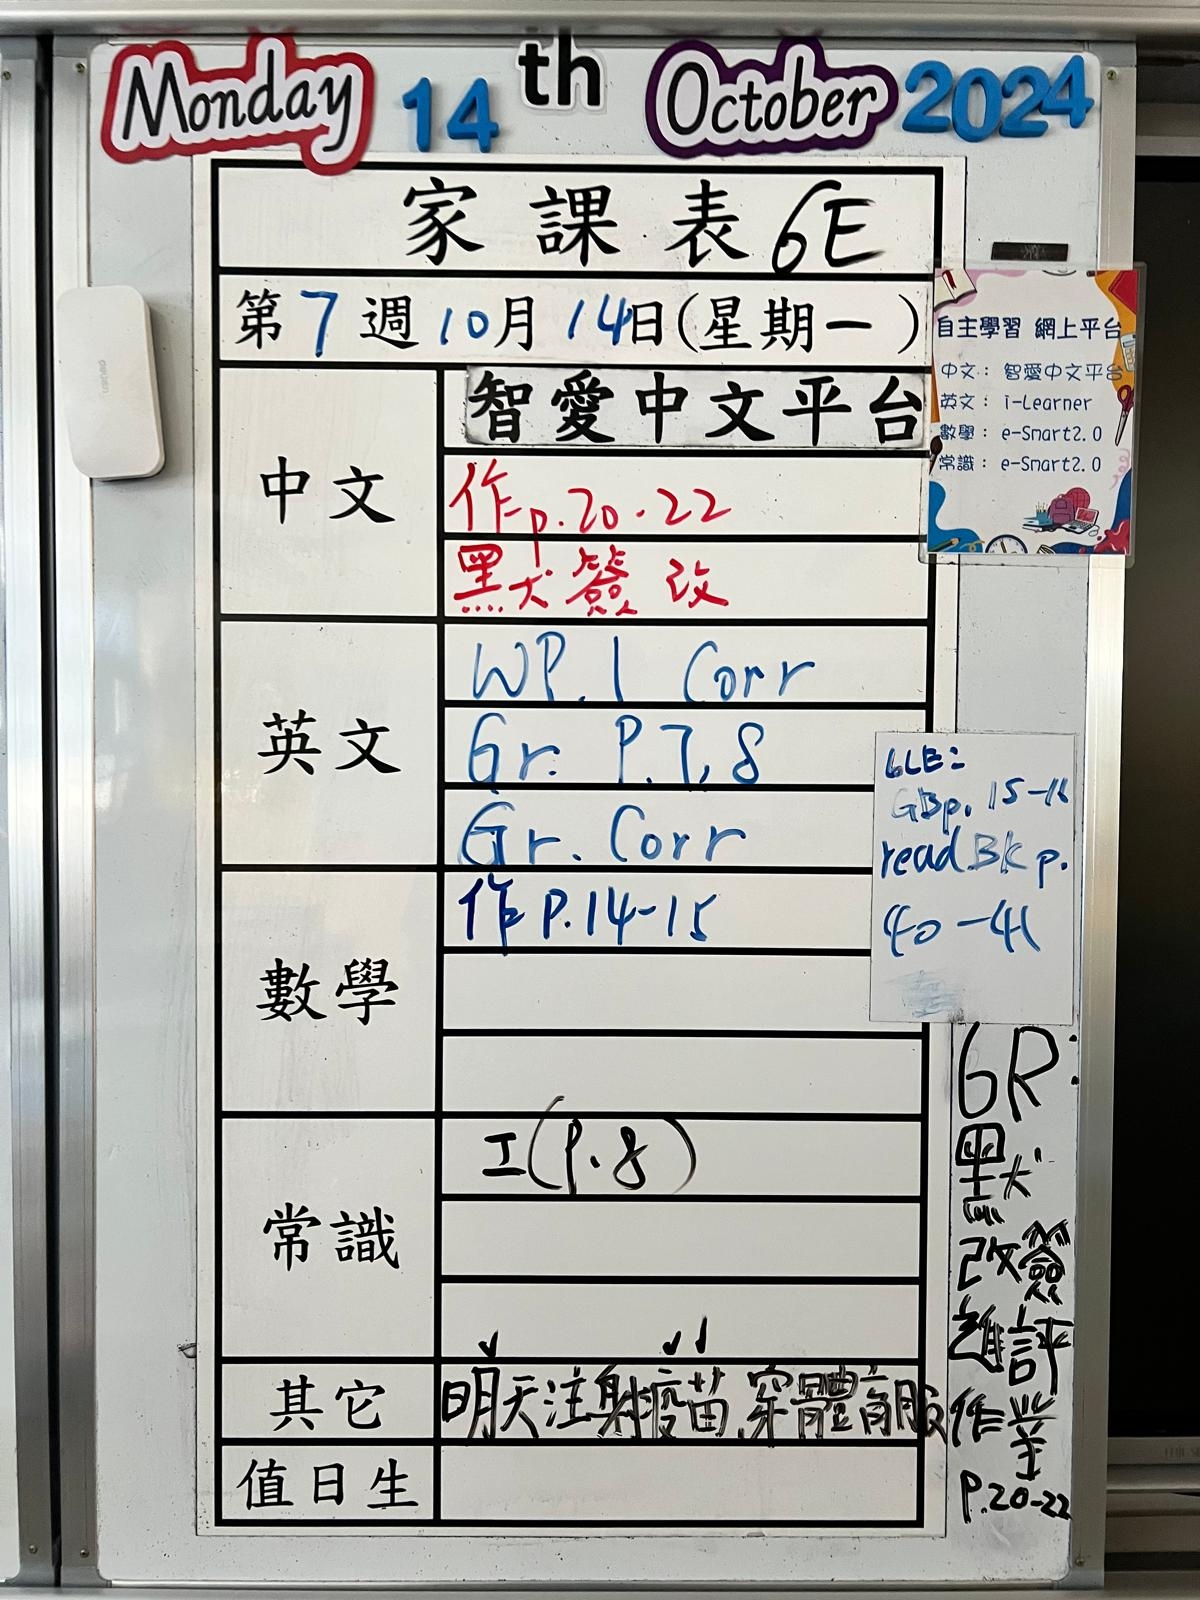 Monday 14th October 2024
家課表 6E
第7週10月14日(星期一)
中文
智愛中文平台
作p.20-22
默簽改
英文
WP.1 Corr
Gr. P.7,8
Gr. Corr
數學
作P.14-15
常識
工(P.8)
其它
明天注射疫苗,穿體育服
值日生
自主學習 網上平台
中文：智愛中文平台
英文：i-Learner
數學：e-Smart2.0
常識：e-Smart2.0
6LE:
GBp.15-16
readBk p.
40-41
6R:
默
改簽
進評
作業
P.20-22